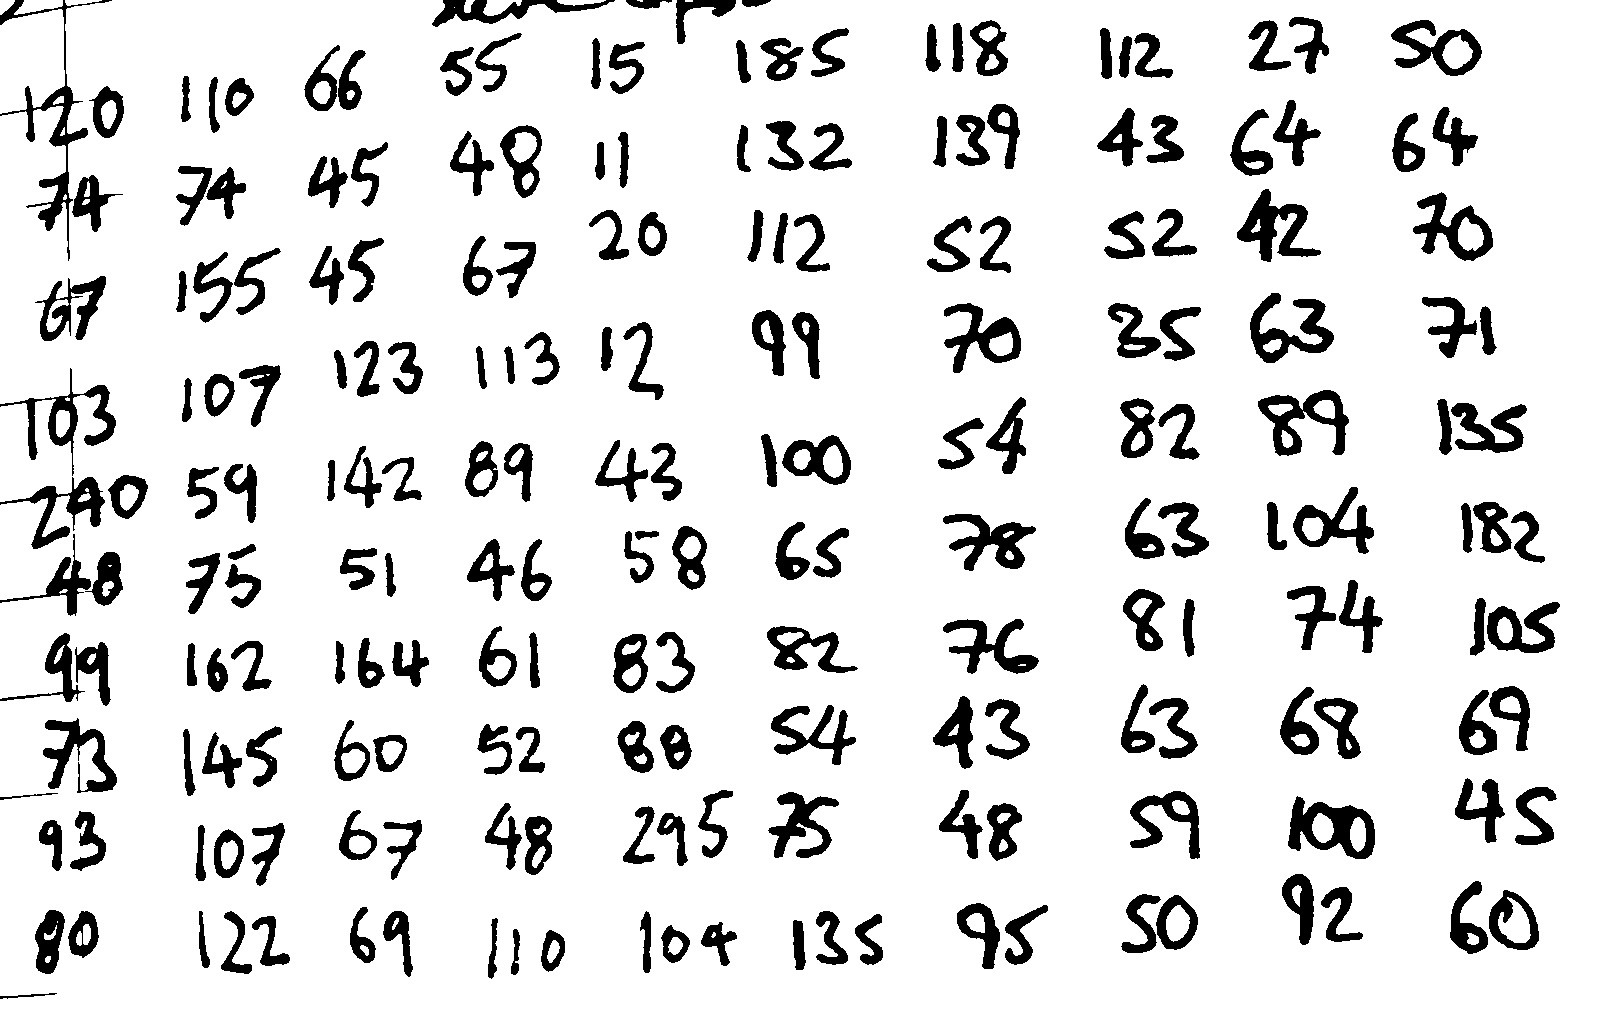 120 110 66 55 15 185 118 112 27 50
74 74 45 48 11 132 139 43 64 64
67 155 45 67 20 112 52 52 42 70
103 107 123 113 12 99 70 35 63 71
240 59 142 89 43 100 54 82 89 135
48 75 51 46 58 65 78 63 104 182
99 162 164 61 83 82 76 81 74 105
73 145 60 52 88 54 43 63 68 69
93 107 67 48 295 75 48 59 100 45
80 122 69 110 104 135 95 50 92 60